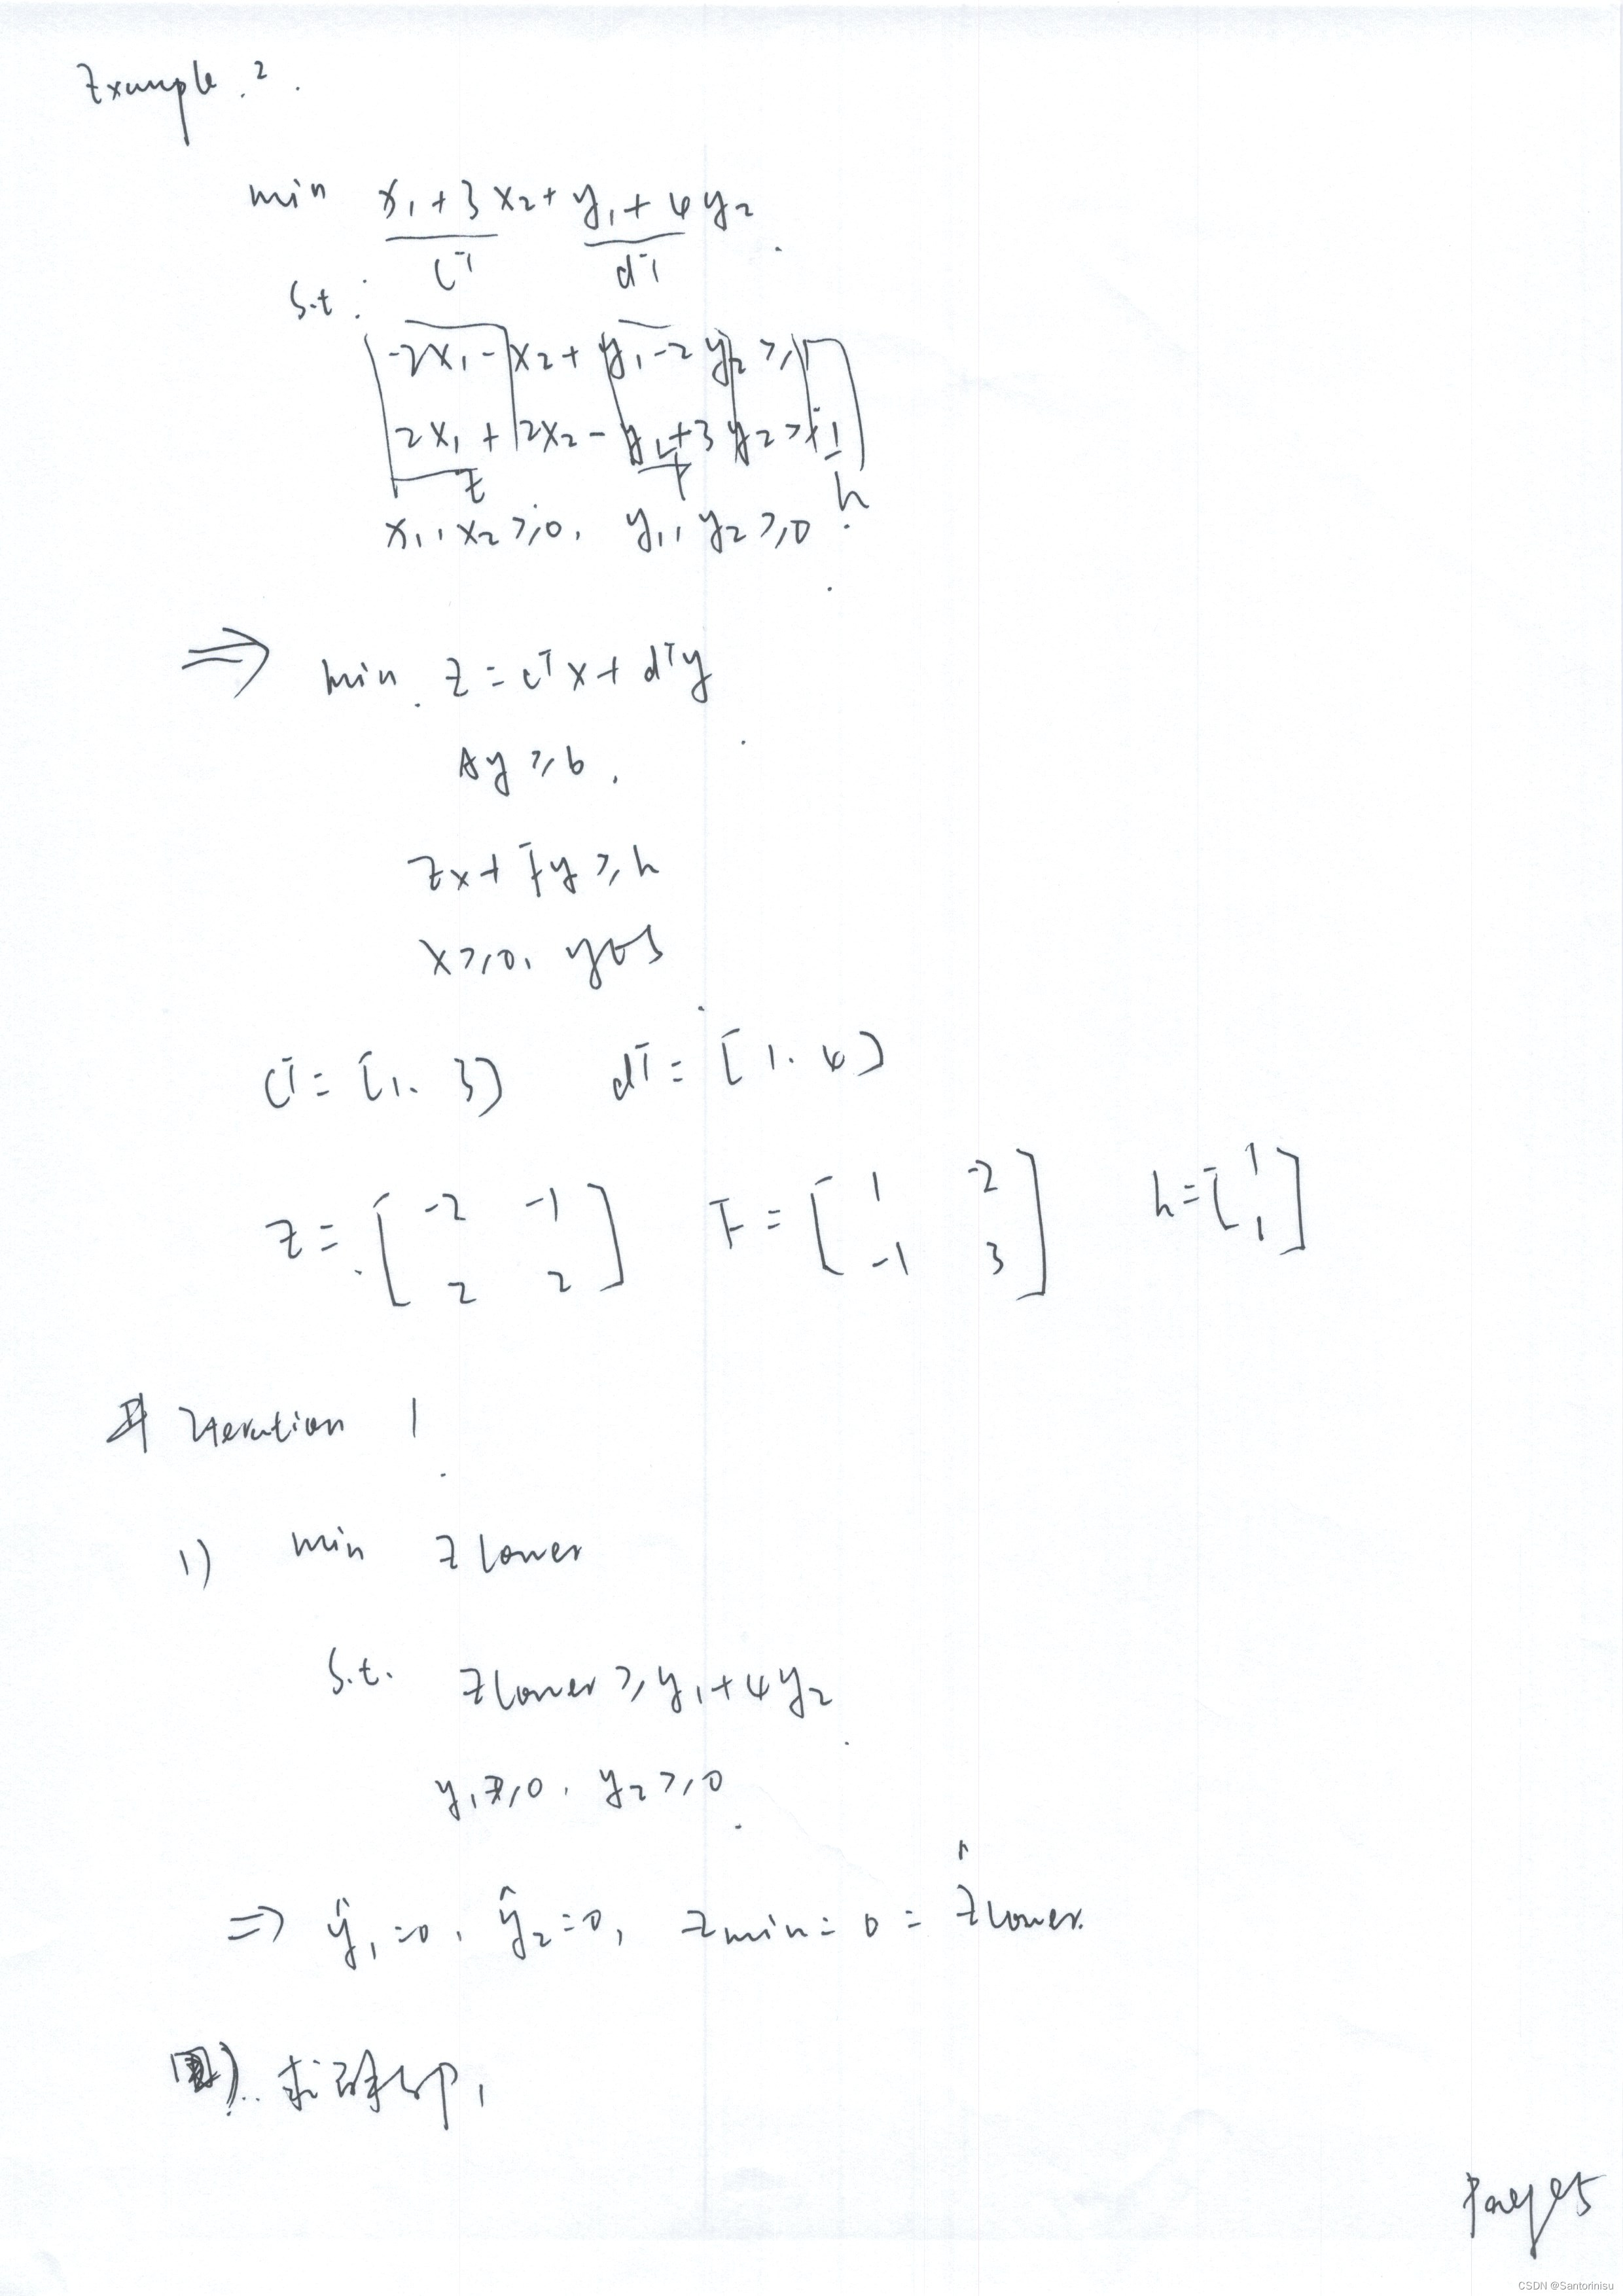 Example.2.
min x₁+3x₂+y₁+4y₂
cᵀ dᵀ
s.t.
-2x₁-x₂+y₁-2y₂≥1
2x₁+2x₂-y₁+3y₂≥1
E F h
x₁,x₂≥0, y₁,y₂≥0
⇒ min. z=cᵀx+dᵀy
Ay≥b,
Ex+Fy≥h
x≥0, y∈S
cᵀ=[1. 3] dᵀ=[1. 4]
E=[-2 -1 F=[1 -2 h=[1
2 2] -1 3] 1]
# Iteration 1
1) min z lower
s.t. z lower≥y₁+4y₂
y₁≥0, y₂≥0
⇒ ŷ₁=0, ŷ₂=0, z min=0=ẑ lower.
2). 求解SP,
Page5
CSDN @Santorinisu